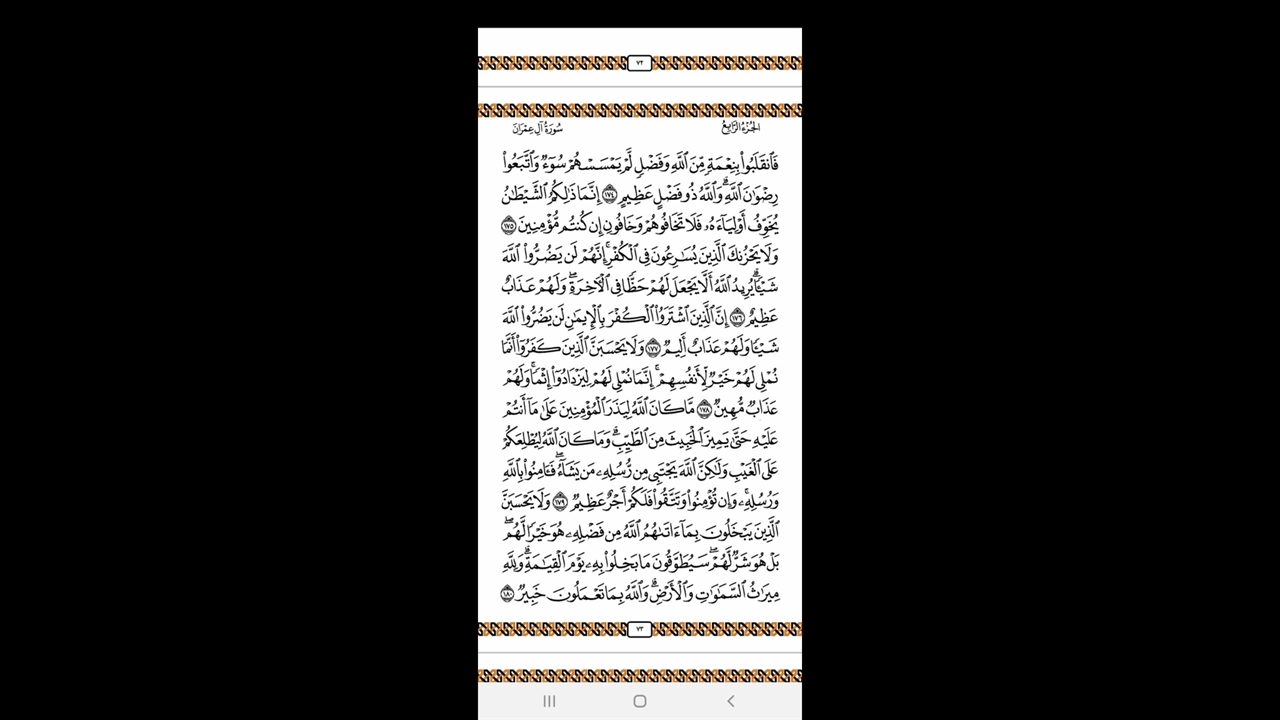 ٧٢
الجزء الرابع
سورة آل عمران
فَٱنقَلَبُوا۟ بِنِعْمَةٍ مِّنَ ٱللَّهِ وَفَضْلٍ لَّمْ يَمْسَسْهُمْ سُوٓءٌ وَٱتَّبَعُوا۟
رِضْوَٰنَ ٱللَّهِ ۗ وَٱللَّهُ ذُو فَضْلٍ عَظِيمٍ ١٧٤ إِنَّمَا ذَٰلِكُمُ ٱلشَّيْطَٰنُ
يُخَوِّفُ أَوْلِيَآءَهُۥ فَلَا تَخَافُوهُمْ وَخَافُونِ إِن كُنتُم مُّؤْمِنِينَ ١٧٥
وَلَا يَحْزُنكَ ٱلَّذِينَ يُسَٰرِعُونَ فِى ٱلْكُفْرِ ۚ إِنَّهُمْ لَن يَضُرُّوا۟ ٱللَّهَ
شَيْـًٔا ۗ يُرِيدُ ٱللَّهُ أَلَّا يَجْعَلَ لَهُمْ حَظًّا فِى ٱلْـَٔاخِرَةِ ۖ وَلَهُمْ عَذَابٌ
عَظِيمٌ ١٧٦ إِنَّ ٱلَّذِينَ ٱشْتَرَوُا۟ ٱلْكُفْرَ بِٱلْإِيمَٰنِ لَن يَضُرُّوا۟ ٱللَّهَ
شَيْـًٔا وَلَهُمْ عَذَابٌ أَلِيمٌ ١٧٧ وَلَا يَحْسَبَنَّ ٱلَّذِينَ كَفَرُوٓا۟ أَنَّمَا
نُمْلِى لَهُمْ خَيْرٌ لِّأَنفُسِهِمْ ۚ إِنَّمَا نُمْلِى لَهُمْ لِيَزْدَادُوٓا۟ إِثْمًا ۚ وَلَهُمْ
عَذَابٌ مُّهِينٌ ١٧٨ مَّا كَانَ ٱللَّهُ لِيَذَرَ ٱلْمُؤْمِنِينَ عَلَىٰ مَآ أَنتُمْ
عَلَيْهِ حَتَّىٰ يَمِيزَ ٱلْخَبِيثَ مِنَ ٱلطَّيِّبِ ۗ وَمَا كَانَ ٱللَّهُ لِيُطْلِعَكُمْ
عَلَى ٱلْغَيْبِ وَلَٰكِنَّ ٱللَّهَ يَجْتَبِى مِن رُّسُلِهِۦ مَن يَشَآءُ ۖ فَـَٔامِنُوا۟ بِٱللَّهِ
وَرُسُلِهِۦ ۚ وَإِن تُؤْمِنُوا۟ وَتَتَّقُوا۟ فَلَكُمْ أَجْرٌ عَظِيمٌ ١٧٩ وَلَا يَحْسَبَنَّ
ٱلَّذِينَ يَبْخَلُونَ بِمَآ ءَاتَىٰهُمُ ٱللَّهُ مِن فَضْلِهِۦ هُوَ خَيْرًا لَّهُم ۖ
بَلْ هُوَ شَرٌّ لَّهُمْ ۖ سَيُطَوَّقُونَ مَا بَخِلُوا۟ بِهِۦ يَوْمَ ٱلْقِيَٰمَةِ ۗ وَلِلَّهِ
مِيرَٰثُ ٱلسَّمَٰوَٰتِ وَٱلْأَرْضِ ۗ وَٱللَّهُ بِمَا تَعْمَلُونَ خَبِيرٌ ١٨٠
٧٣